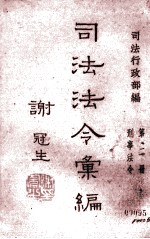 司法行政部編
司法法令彙編
第二冊
刑事法令
謝冠生